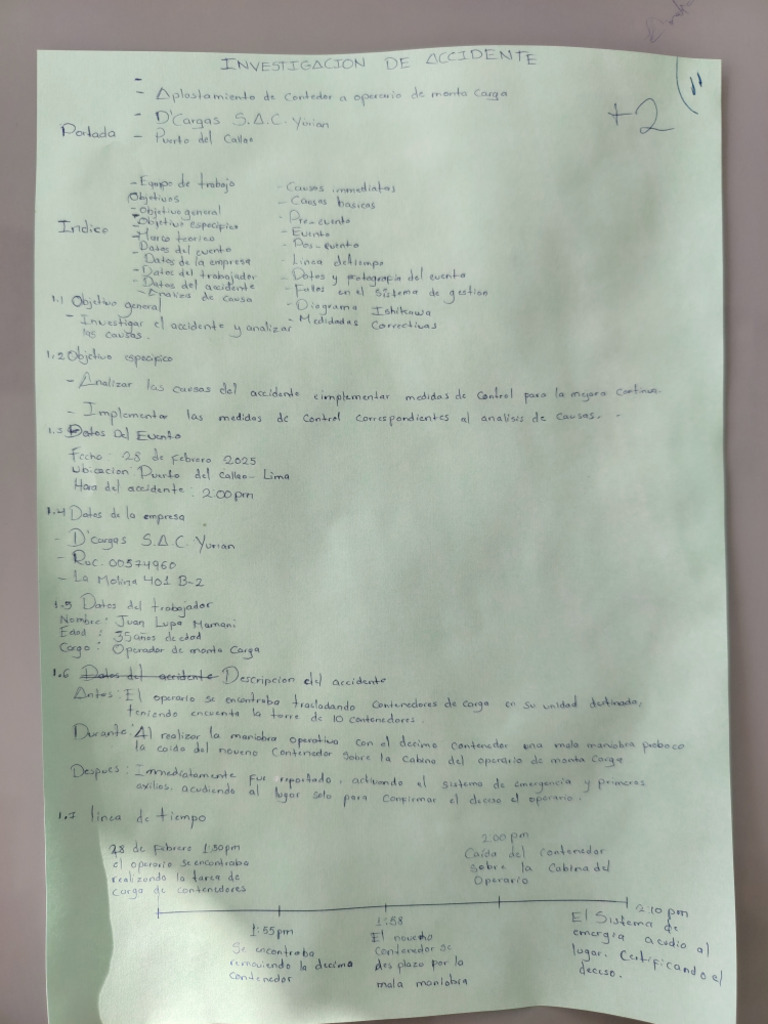 INVESTIGACION DE ACCIDENTE
+2
Portada
-
- Aplastamiento de Contedor a operario de monta Carga
- D'Cargas S.A.C. Yurian
- Puerto del Callao
Indice
- Equipo de trabajo
Objetivos
- Objetivo general
- Objetivo especifico
- Marco teorico
- Datos del evento
Datos de la empresa
- Datos del trabajador
- Datos del accidente
- Analisis de causa
- Causas immediatas
- Causas basicas
- Pre-evento
- Evento
- Pos-evento
- Linea detiempo
- Datos y protografia del evento
- Fallas en el Sistema de gestion
- Diagrama Ishikawa
- Medidadas Correctivas
1.1 Objetivo general
- Investigar el accidente y analizar
las causas.
1.2 Objetivo especifico
- Analizar las causas del accidente eimplementar medidas de control para la mejora continua.
- Implementar las medidas de control correspondientes al analisis de causas.
1.3 Datos Del Evento
Fecha: 28 de febrero 2025
Ubicacion Puerto del Callao - Lima
Hora del accidente: 2:00pm
1.4 Datos de la empresa
- D'cargas S.A.C. Yurian
- Ruc. 00574960
- La Molina 401 B-2
1.5 Datos del trabajador
Nombre: Juan Lupa Mamani
Edad: 35 años de edad
Cargo: Operador de monta Carga
1.6 Datos del accidente Descripcion del accidente
Antes: El operario se encontraba trasladando contenedores de carga en su unidad destinada,
teniendo encuenta la torre de 10 contenedores.
Durante: Al realizar la maniobra operativa con el decimo contenedor una mala maniobra proboco
la caida del noveno Contenedor sobre la Cabina del operario de monta Carga
Despues: Immediatamente fue reportado, activando el sistema de emergencia y primeros
auxilios, acudiendo al lugar solo para Confirmar el deceso el operario.
1.7 linea de tiempo
28 de febrero 1:30pm
el operario se encontraba
realizando la tarea de
carga de contenedores
1:55pm
Se encontraba
removiendo la decima
contenedor
1:58
El noveno
Contenedor se
desplazo por la
mala maniobra
2:00 pm
Caida del contenedor
sobre la Cabina del
Operario
2:10 pm
El Sistema de
emergia acudio al
lugar. Certificando el
deceso.